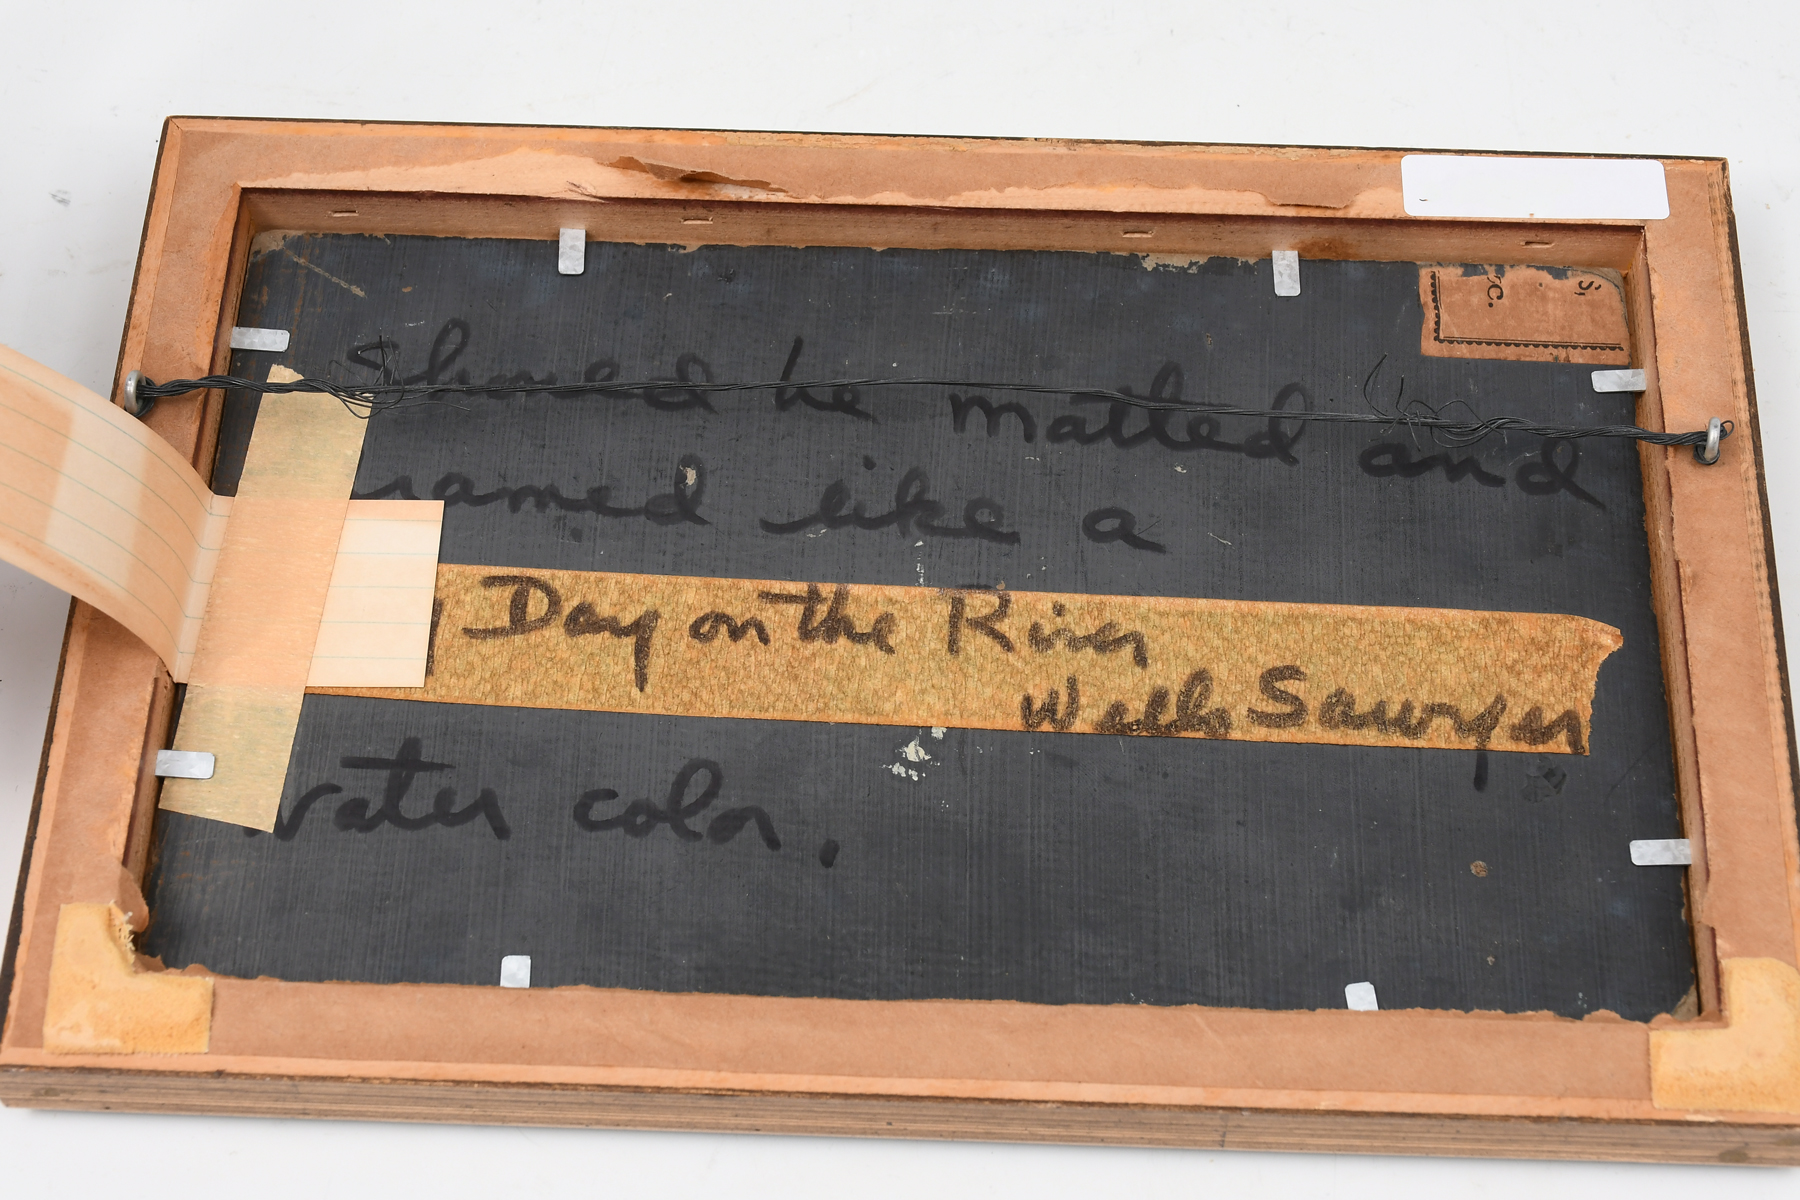 Should be matted and
ramed like a
Day on the River
Wells Sawyer
Water color.
s,
c.